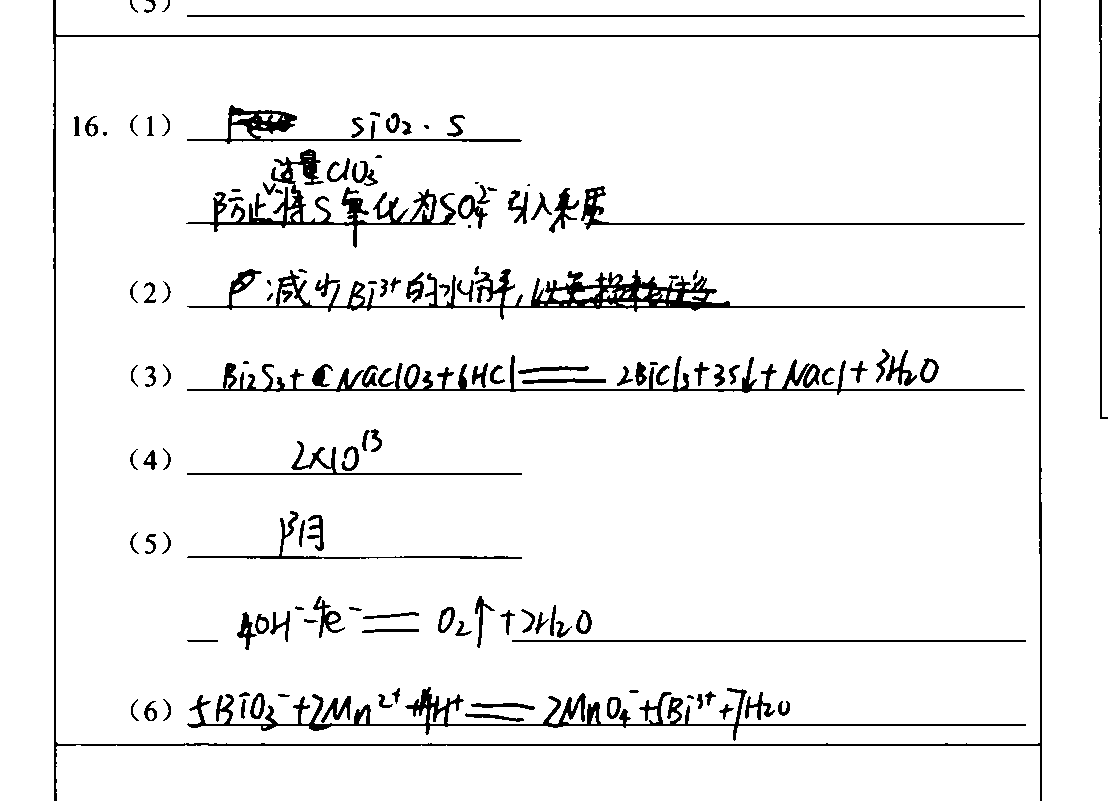 (5)
16.（1） SiO₂ . S
过量ClO₃⁻
防止将S氧化为SO₄²⁻引入杂质
（2） 减少Bi³⁺的水解,
（3） Bi₂S₃+NaClO₃+6HCl══2BiCl₃+3S↓+NaCl+3H₂O
（4） 2×10¹³
（5） 阴
4OH⁻-4e⁻══O₂↑+2H₂O
（6） 5BiO₃⁻+2Mn²⁺+14H⁺══2MnO₄⁻+5Bi³⁺+7H₂O